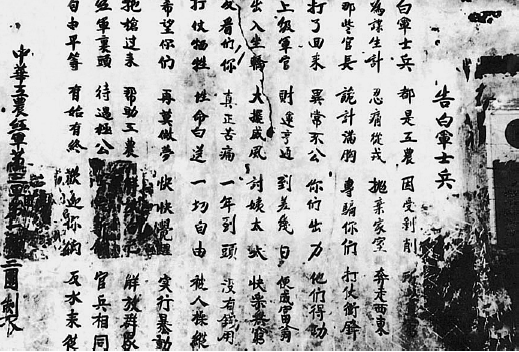 告白軍士兵
白軍士兵 都是工農 因受剝削
為謀生計 忍痛從戎 拋棄家室 奔走西東
那些官長 詭計滿胸 專騙你們 打仗衝鋒
打了回來 異常不公 你們出力 他們得功
上級軍官 財運亨通 到差幾日 便成富翁
出入坐轎 大擺威風 討姨太太 快樂無窮
反看们你 真正苦痛 一年到頭 沒有錢用
打仗犧牲 性命白送 一切自由 被人操縱
希望你们 再莫做夢 快快覺醒 實行暴動
拖槍过来 幫助工農 解放群眾
紅軍裏頭 待遇極公 官兵相同
自由平等 有始有終 歡迎你们 反水來從
中華工農紅軍第三 二團